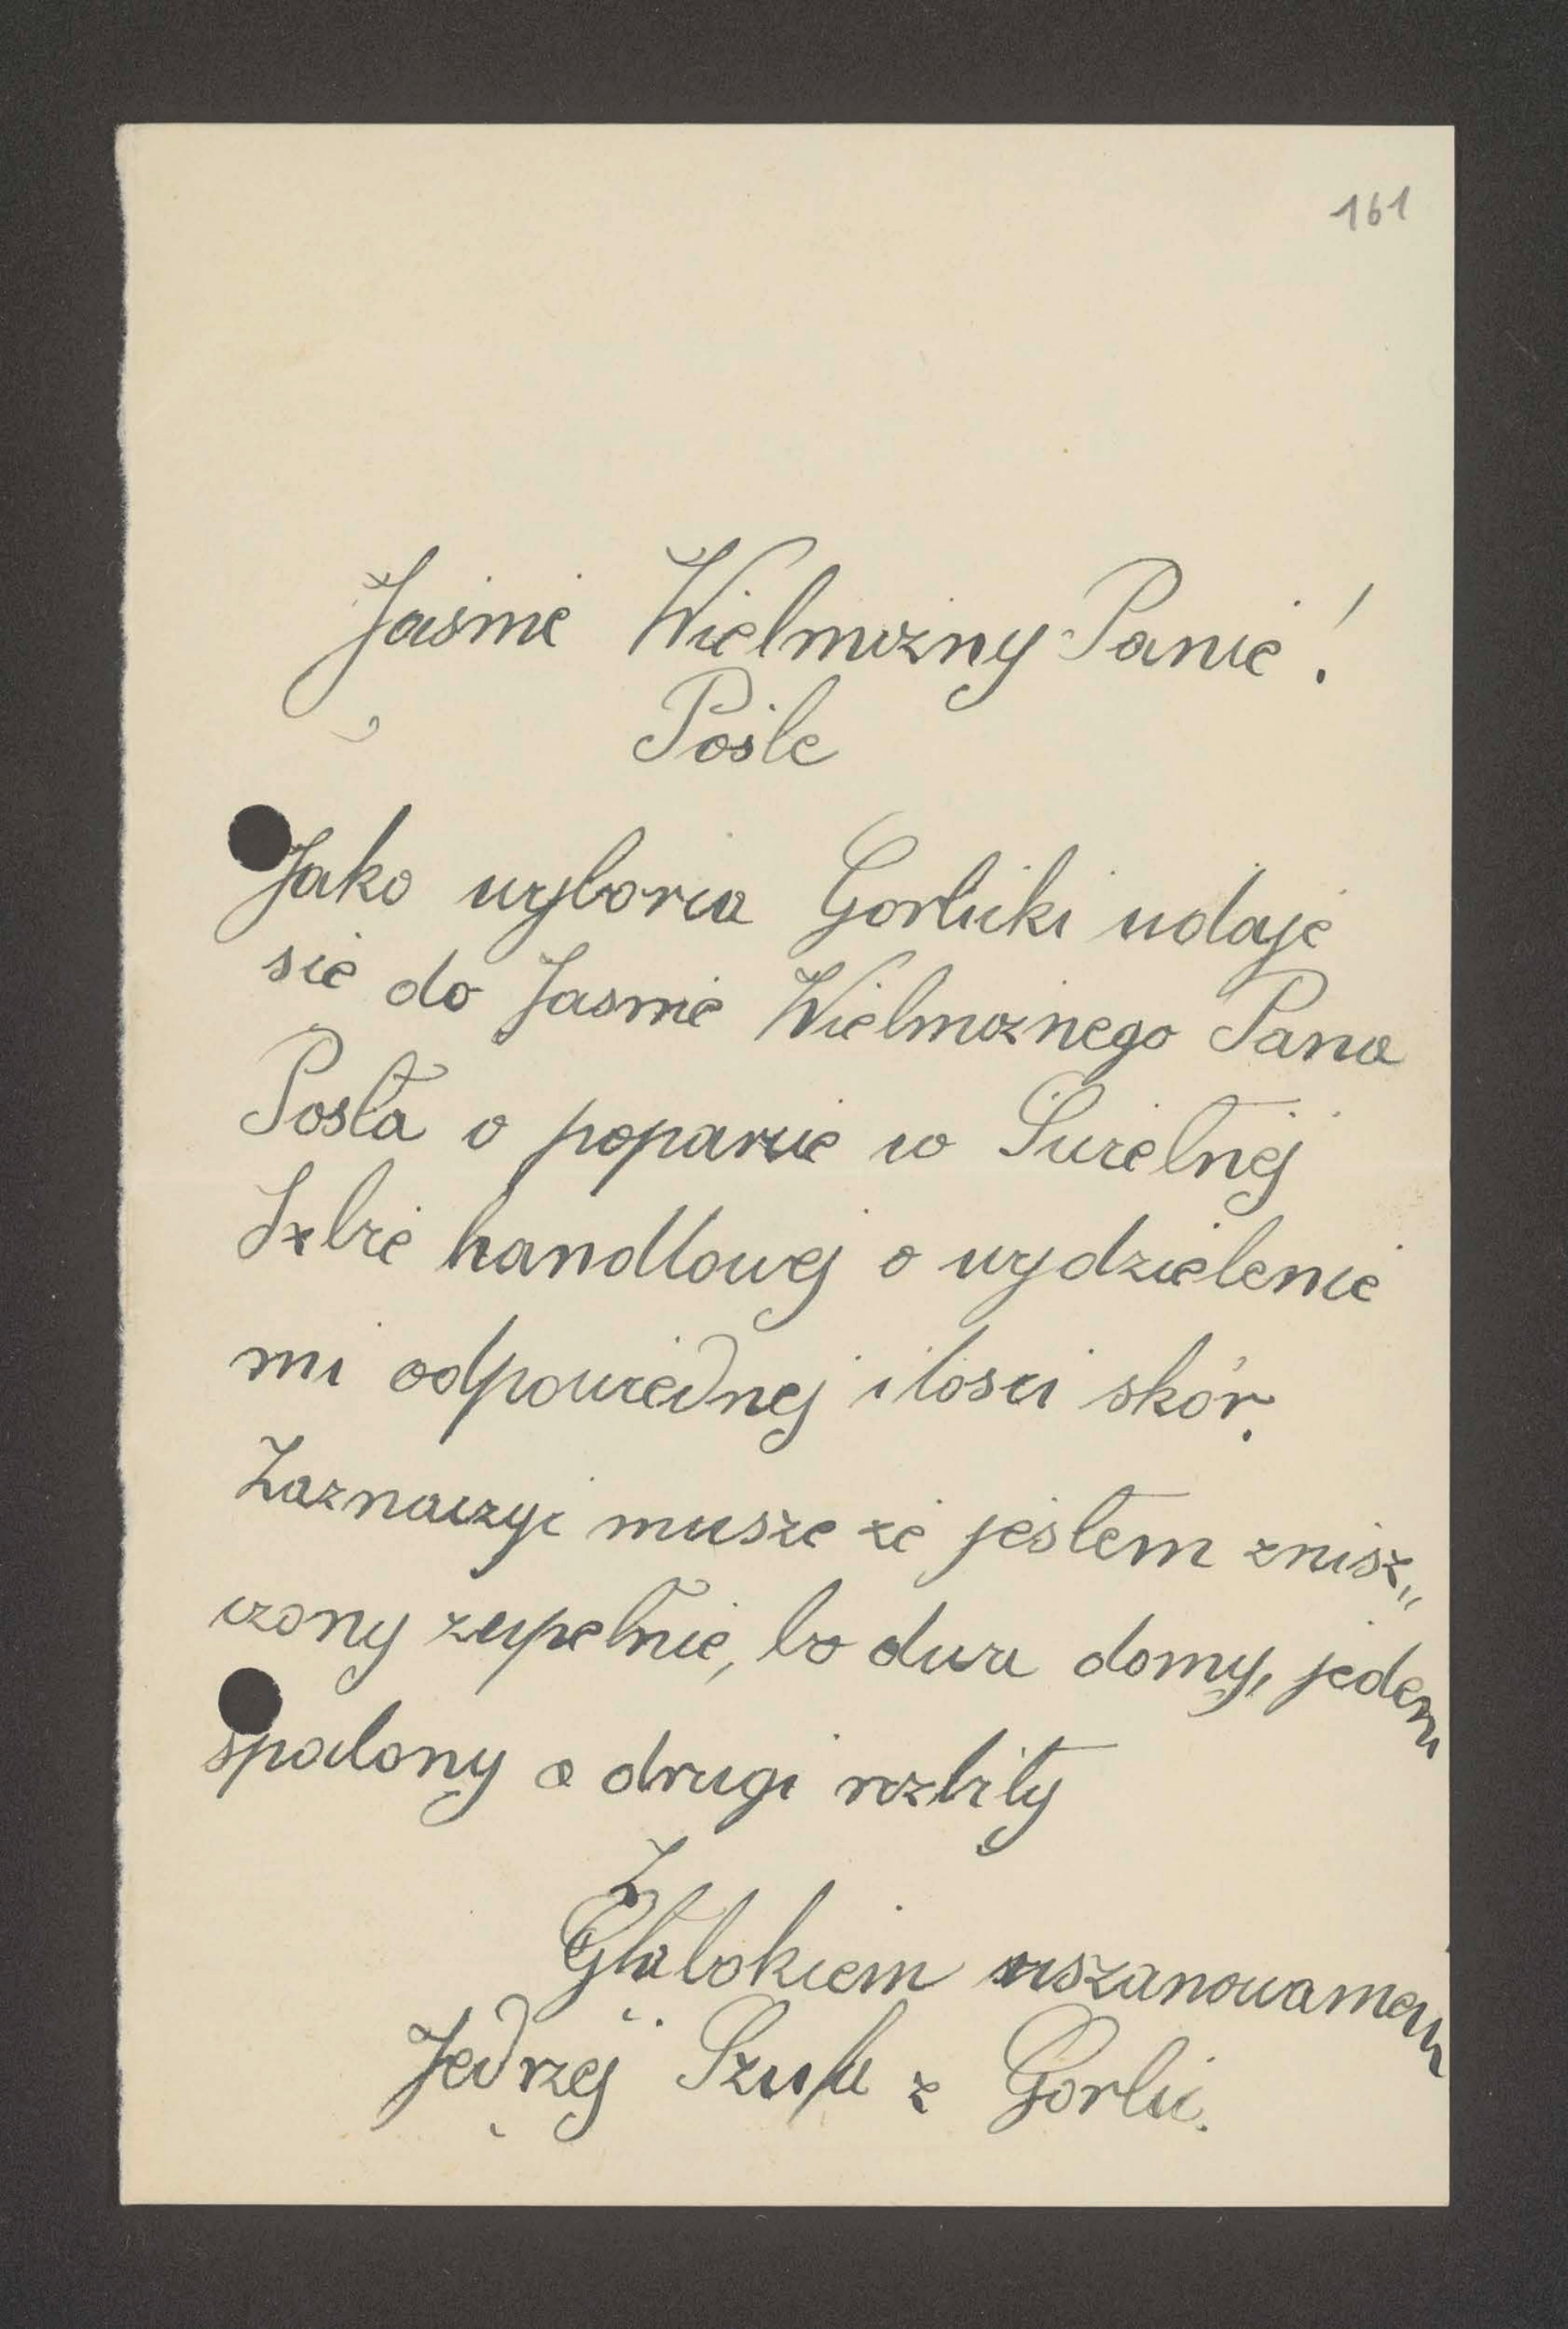 161
Jaśnie Wielmożny Panie!
Pośle
Jako wyborca Gorlicki udaje
sie do Jasnie Wielmożnego Pana
Posła o poparcie w
Izbie handlowej o wydzielenie
mi odpowiednej ilosci skór.
Zaznaczyc musze że jestem znisz„
czony zupełnie, bo dwa domy, jeden
spalony a drugi rozbity
Z
Głębokiem uszanowaniem
Jedrzej z Gorlic.